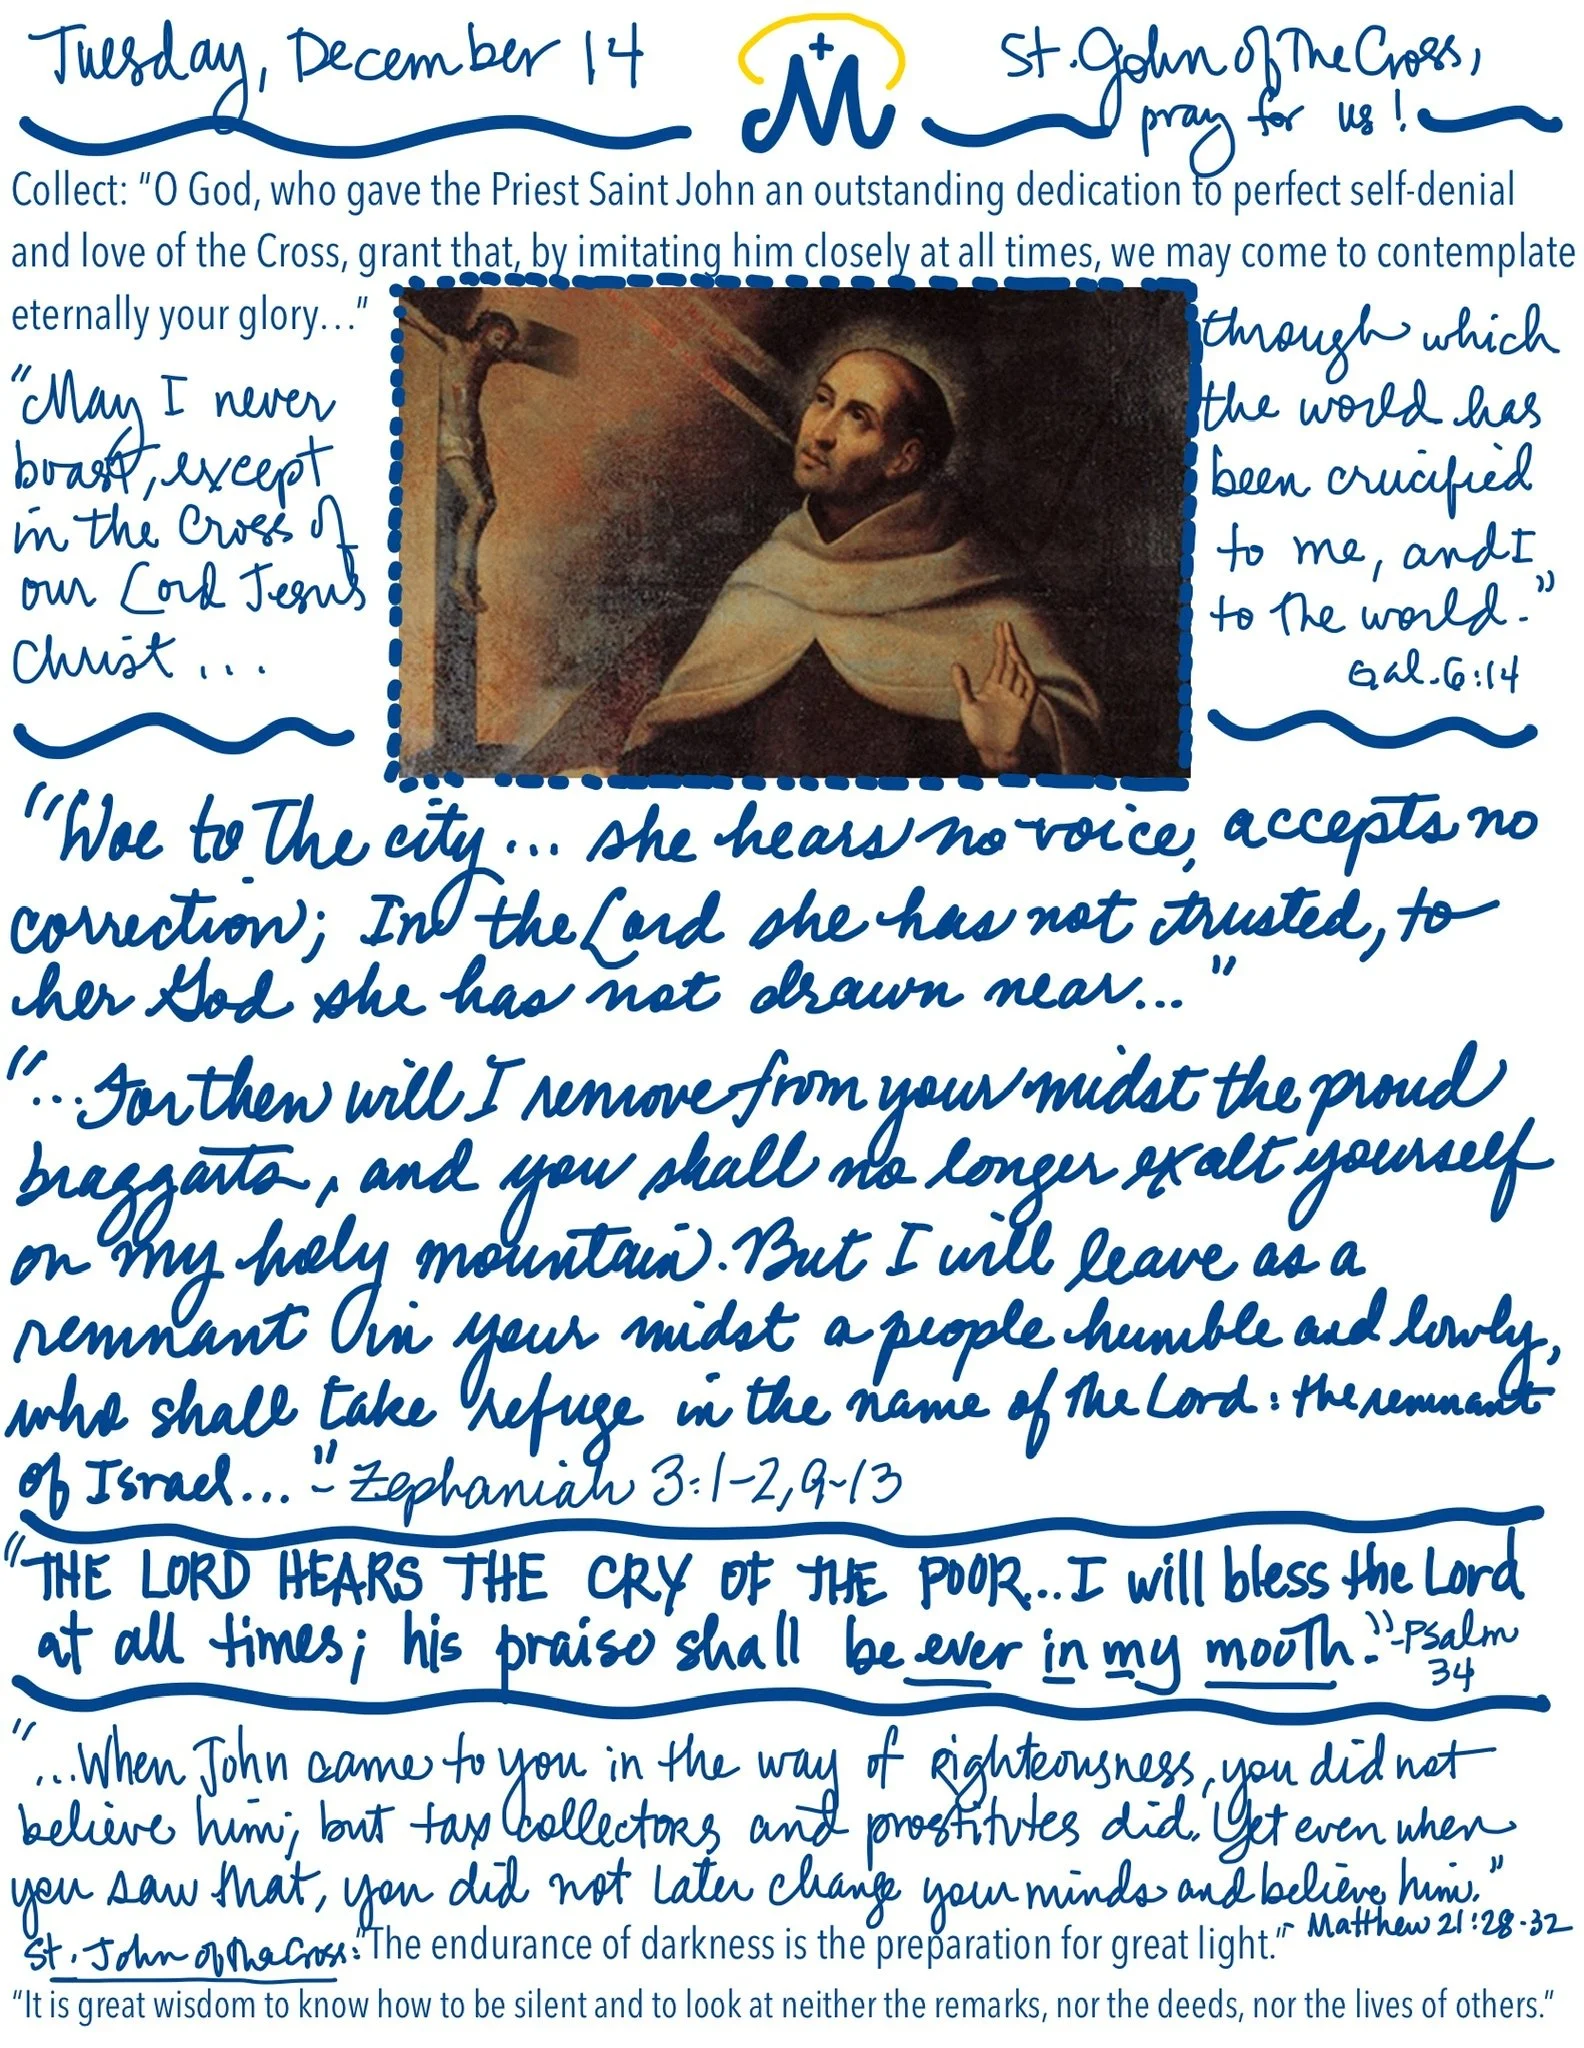 Tuesday, December 14
M
St. John of The Cross,
pray for us!
Collect: “O God, who gave the Priest Saint John an outstanding dedication to perfect self-denial
and love of the Cross, grant that, by imitating him closely at all times, we may come to contemplate
eternally your glory…”
"May I never
boast, except
in the Cross of
our Lord Jesus
Christ...
through which
the world has
been crucified
to me, and I
to the world."
Gal. 6:14
"Woe to the city... she hears no voice, accepts no
correction; In the Lord she has not trusted, to
her God she has not drawn near..."
"...For then will I remove from your midst the proud
braggarts, and you shall no longer exalt yourself
on my holy mountain. But I will leave as a
remnant in your midst a people humble and lowly,
who shall take refuge in the name of the Lord: the remnant
of Israel..." - Zephaniah 3:1-2, 9-13
"THE LORD HEARS THE CRY OF THE POOR...I will bless the Lord
at all times; his praise shall be ever in my mouth." - Psalm
34
"...When John came to you in the way of righteousness, you did not
believe him; but tax collectors and prostitutes did. Yet even when
you saw that, you did not later change your minds and believe him."
- Matthew 21:28-32
St. John of the Cross: “The endurance of darkness is the preparation for great light.”
“It is great wisdom to know how to be silent and to look at neither the remarks, nor the deeds, nor the lives of others.”